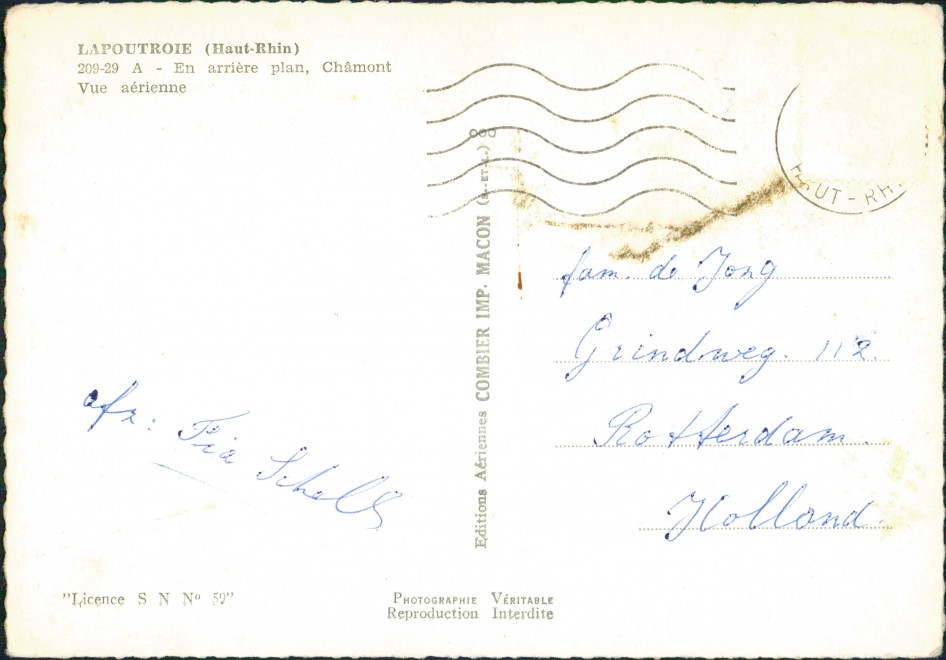 LAPOUTROIE (Haut-Rhin)
209-29 A - En arrière plan, Châmont
Vue aérienne
HAUT-RH
Editions Aériennes COMBIER IMP. MACON (S.-ET-L.)
fam. de Jong
Grindweg. 112.
Rotterdam.
Holland.
afz: Ria Schell
"Licence S N Nº 59"
PHOTOGRAPHIE VÉRITABLE
Reproduction Interdite